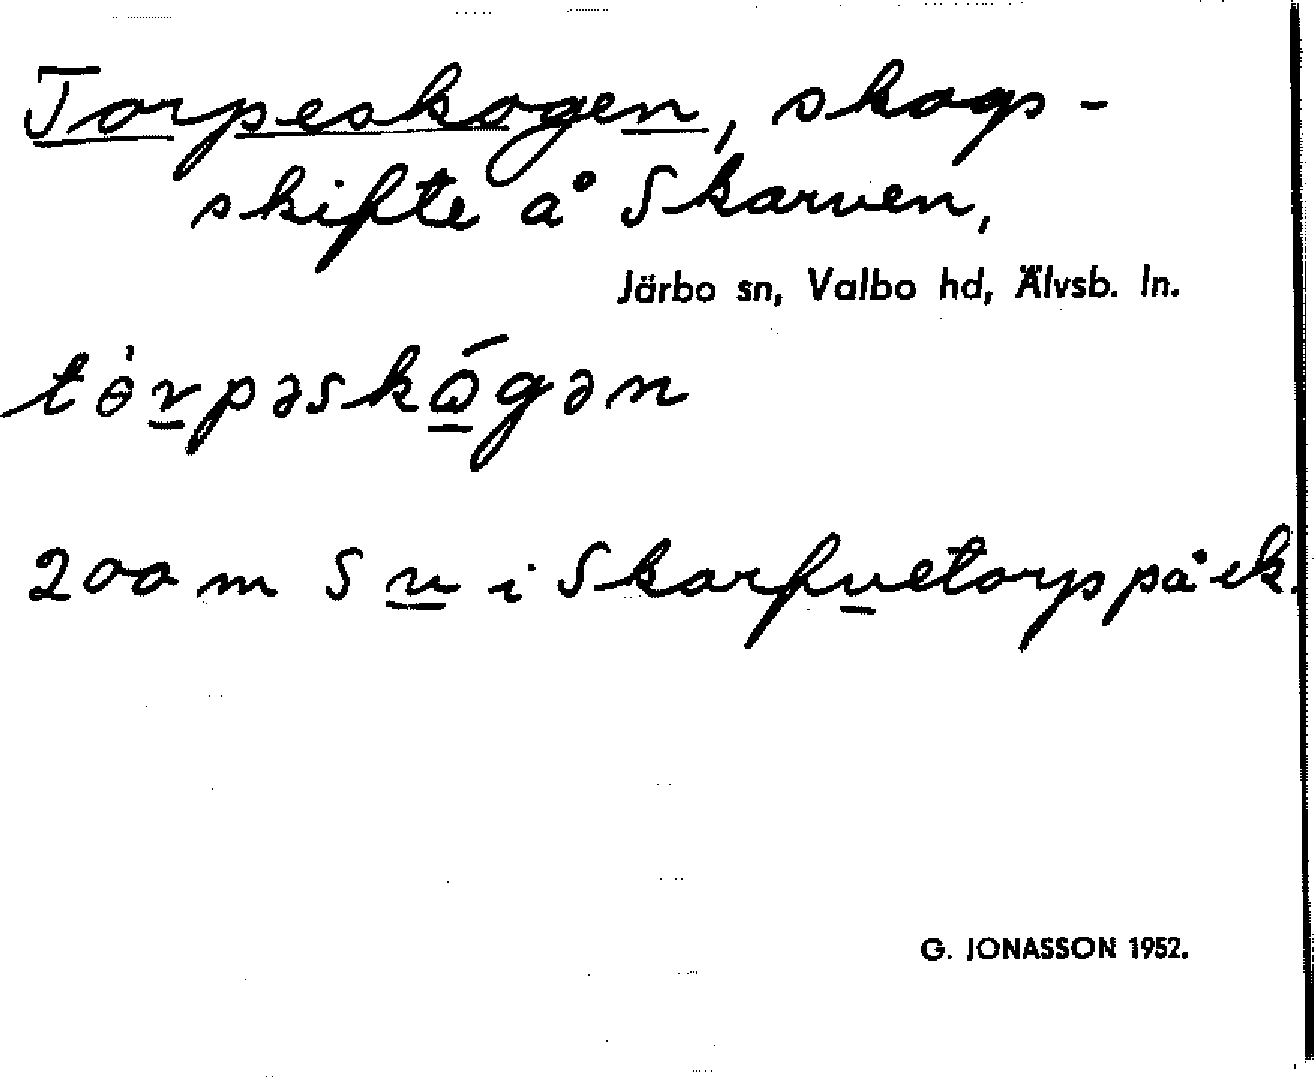 Torpeskogen, skogs-
skifte å Skarven,
Järbo sn, Valbo hd, Älvsb. ln.
tɵ̇rpəskǫ́gən
200 m S n i Skarfvetorp på ek.
G. JONASSON 1952.